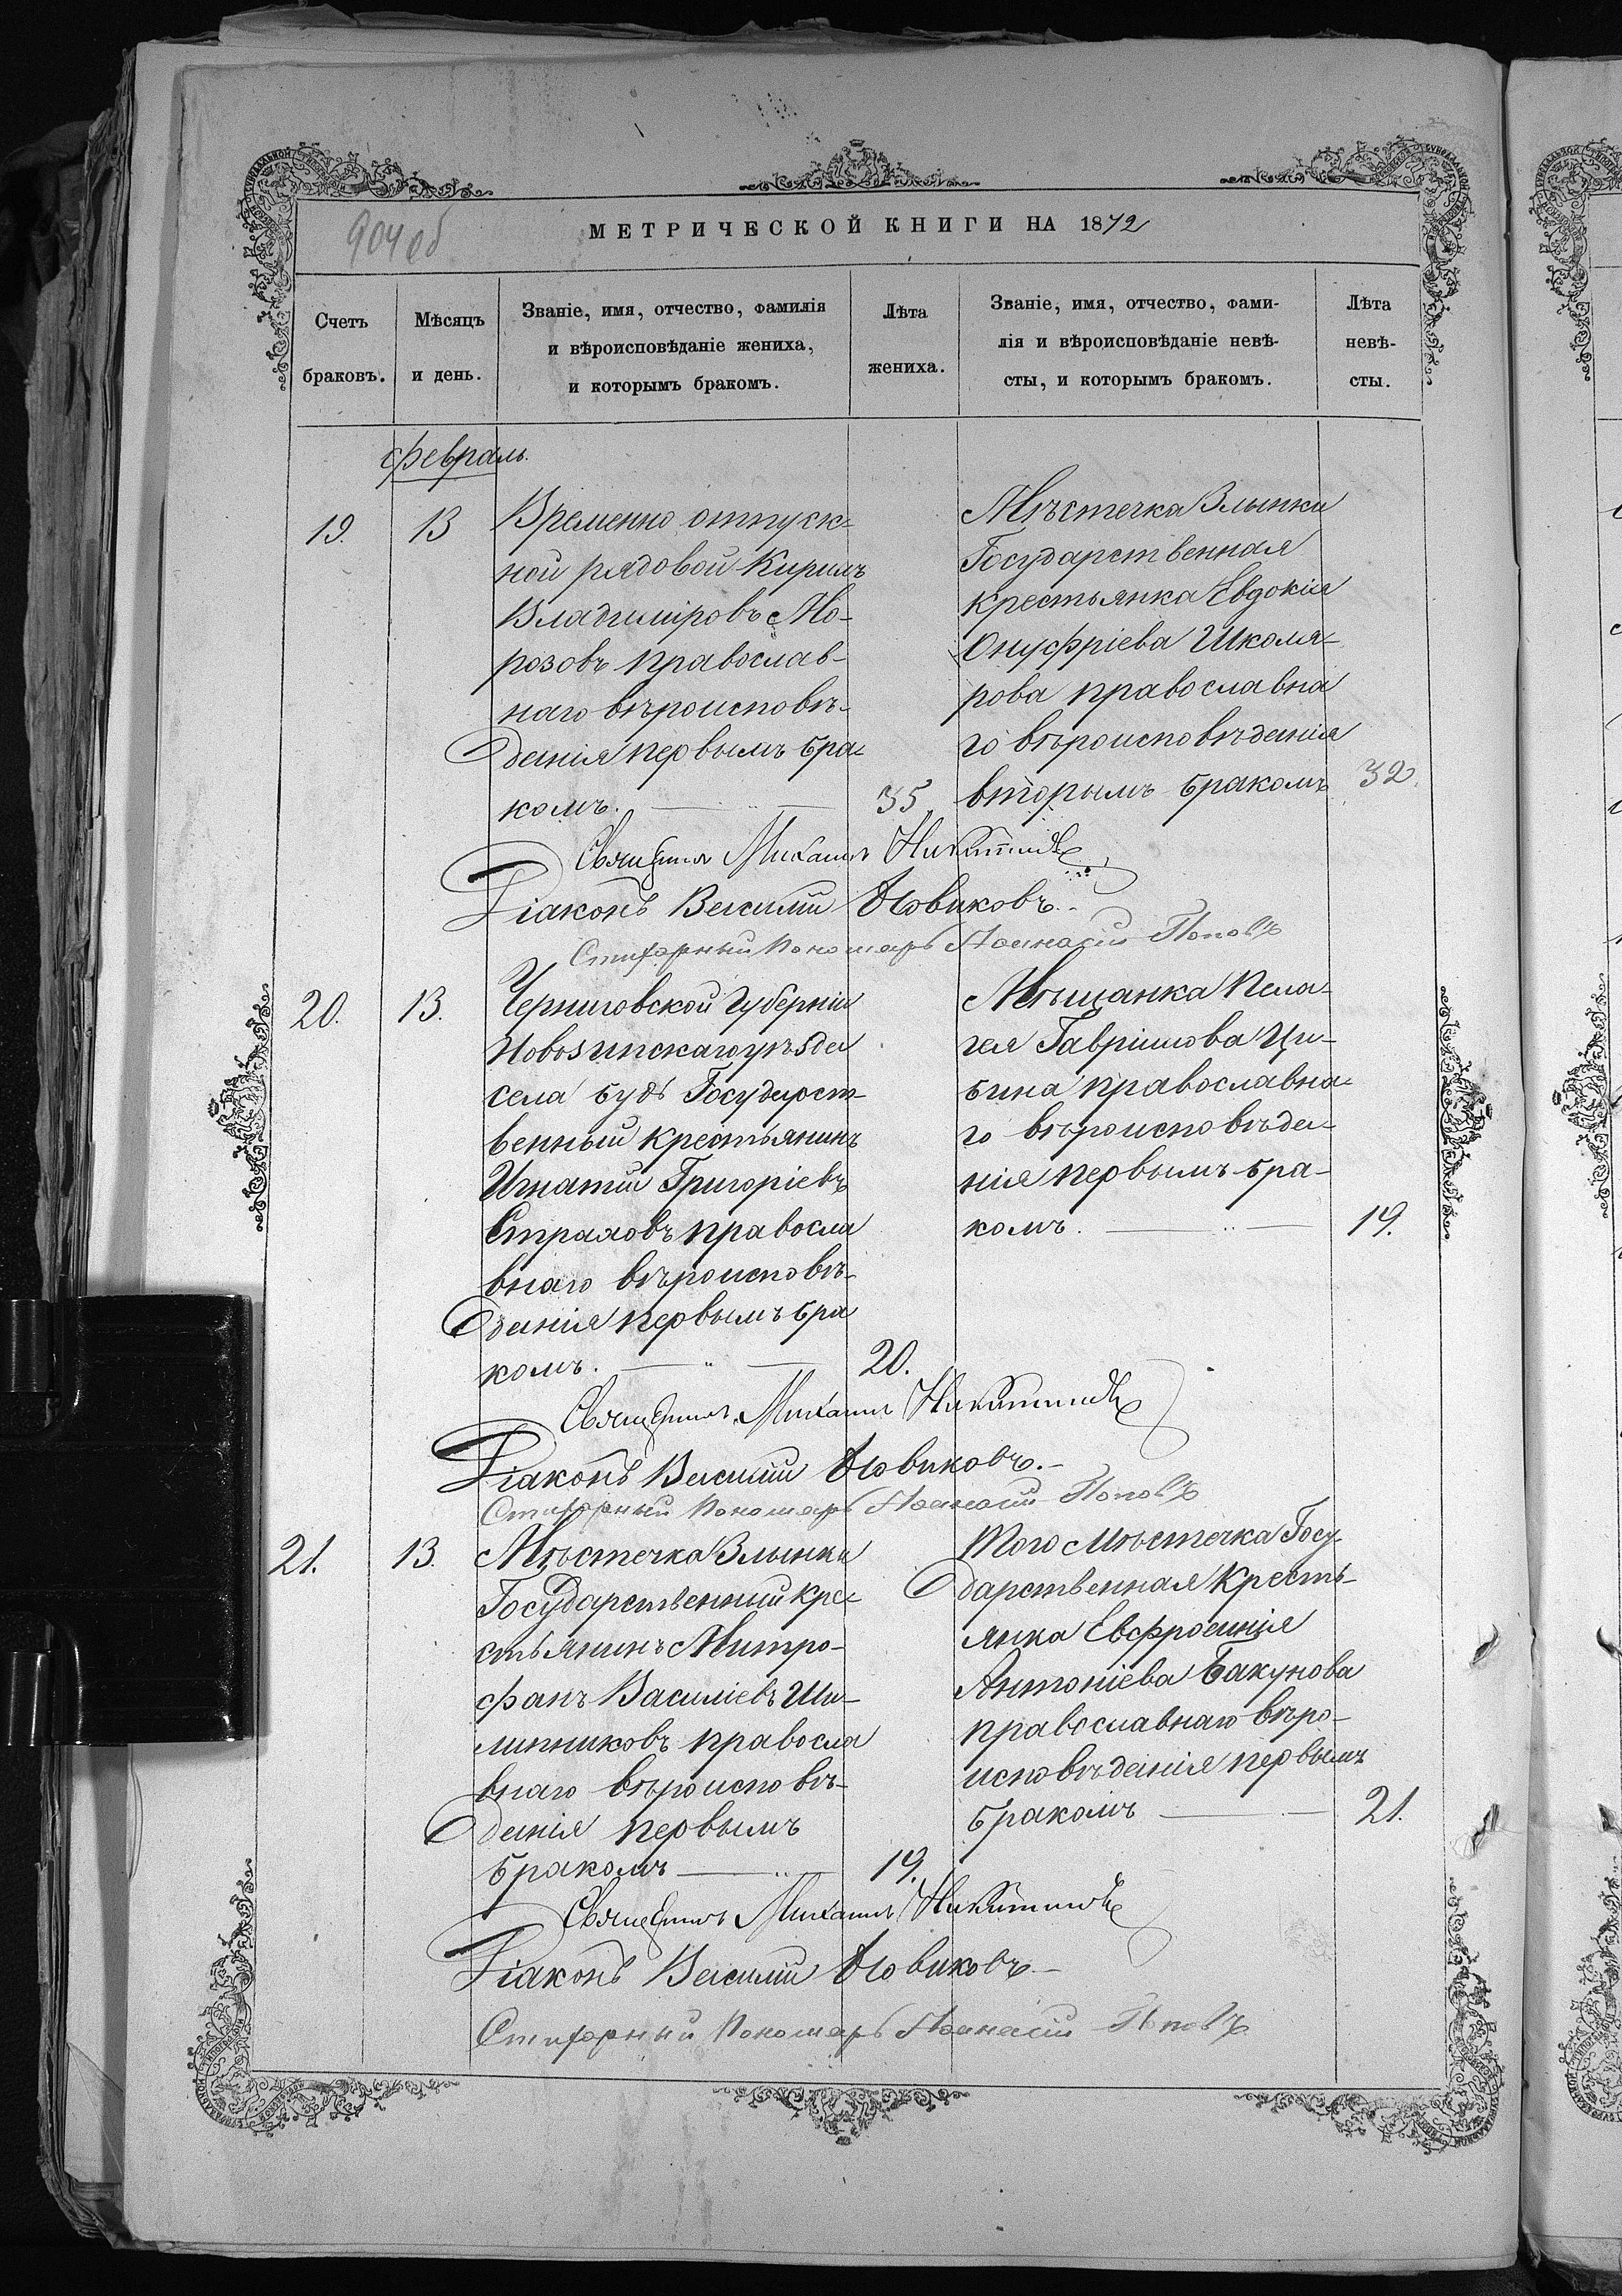 904 об
МЕТРИЧЕСКОЙ КНИГИ НА 1872
Счетъ браковъ.
Мѣсяцъ и день.
Званіе, имя, отчество, фамилія
и вѣроисповѣданіе жениха,
и которымъ бракомъ.
Лѣта
жениха.
Званіе, имя, отчество, фами-
лія и вѣроисповѣданіе невѣ-
сты, и которымъ бракомъ.
Лѣта
невѣ-
сты.
февраль.
19. 13
Временно отпуск-
ной рядовой Кирилъ
Владиміровъ Мо-
розовъ православ-
наго вѣроисповѣ-
данія первымъ бра-
комъ. 35
Мѣстечка Злынки
Государственная
крестьянка Евдокія
Онуфріева Школя-
рова православна
го вѣроисповѣданія
вторымъ бракомъ 32.
Священникъ Михаилъ Никитинъ
Діаконъ Василій Новиковъ.
Стихарный Пономарь Аѳанасій Поповъ
20. 13.
Черниговской Губерніи
Новозыпскаго уѣзда
села Будъ Государст-
венный крестьянинъ
Игнатій Григоріевъ
Страховъ правосла
внаго вѣроисповѣ-
данія первымъ бра
комъ. 20.
Мѣщанка Пела-
гея Гавріилова Ци-
бина православна-
го вѣроисповѣда-
нія первымъ бра-
комъ. 19.
Священникъ Михаилъ Никитинъ
Діаконъ Василій Новиковъ.
Стихарный Пономарь Аѳанасій Поповъ
21. 13.
Мѣстечка Злынки
Государственный кре-
стьянинъ Митро-
фанъ Василіевъ Ши-
линниковъ правосла
внаго вѣроисповѣ-
данія первымъ
бракомъ 19.
Того мѣстечка Госу-
дарственная Кресть-
янка Евфросинія
Антоніева Бакунова
православнаго вѣро-
исповѣданія первымъ
бракомъ 21.
Священникъ Михаилъ Никитинъ
Діаконъ Василій Новиковъ
Стихарный Пономарь Аѳанасій Поповъ